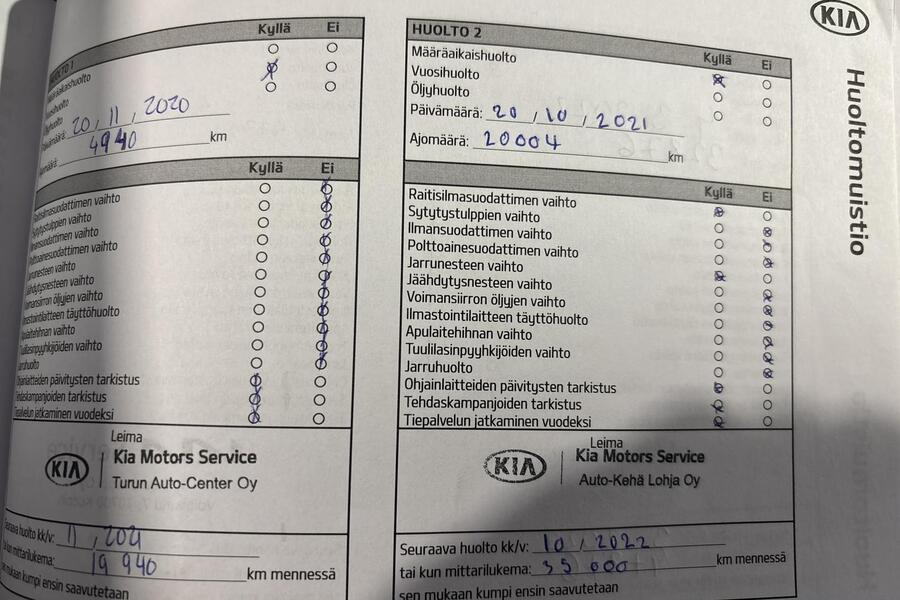 HUOLTO 1
Kyllä Ei
Määräaikaishuolto
Vuosihuolto
Öljyhuolto
Päivämäärä: 20 , 11 , 2020
4940 km
Kyllä Ei
Raitisilmasuodattimen vaihto
Sytytystulppien vaihto
Ilmansuodattimen vaihto
Polttoainesuodattimen vaihto
Jarrunesteen vaihto
Jäähdytysnesteen vaihto
Voimansiirron öljyjen vaihto
Ilmastointilaitteen täyttöhuolto
Apulaitehihnan vaihto
Tuulilasinpyyhkijöiden vaihto
Jarruhuolto
Ohjainlaitteiden päivitysten tarkistus
Tehdaskampanjoiden tarkistus
Tiepalvelun jatkaminen vuodeksi
Leima
KIA Kia Motors Service
Turun Auto-Center Oy
Seuraava huolto kk/v: 11 , 2021
tai kun mittarilukema: 19 940 km mennessä
sen mukaan kumpi ensin saavutetaan
HUOLTO 2
Kyllä Ei
Määräaikaishuolto
Vuosihuolto
Öljyhuolto
Päivämäärä: 20 , 10 , 2021
Ajomäärä: 20004 km
Kyllä Ei
Raitisilmasuodattimen vaihto
Sytytystulppien vaihto
Ilmansuodattimen vaihto
Polttoainesuodattimen vaihto
Jarrunesteen vaihto
Jäähdytysnesteen vaihto
Voimansiirron öljyjen vaihto
Ilmastointilaitteen täyttöhuolto
Apulaitehihnan vaihto
Tuulilasinpyyhkijöiden vaihto
Jarruhuolto
Ohjainlaitteiden päivitysten tarkistus
Tehdaskampanjoiden tarkistus
Tiepalvelun jatkaminen vuodeksi
Leima
KIA Kia Motors Service
Auto-Kehä Lohja Oy
Seuraava huolto kk/v: 10 / 2022
tai kun mittarilukema: 35 000 km mennessä
sen mukaan kumpi ensin saavutetaan
KIA
Huoltomuistio